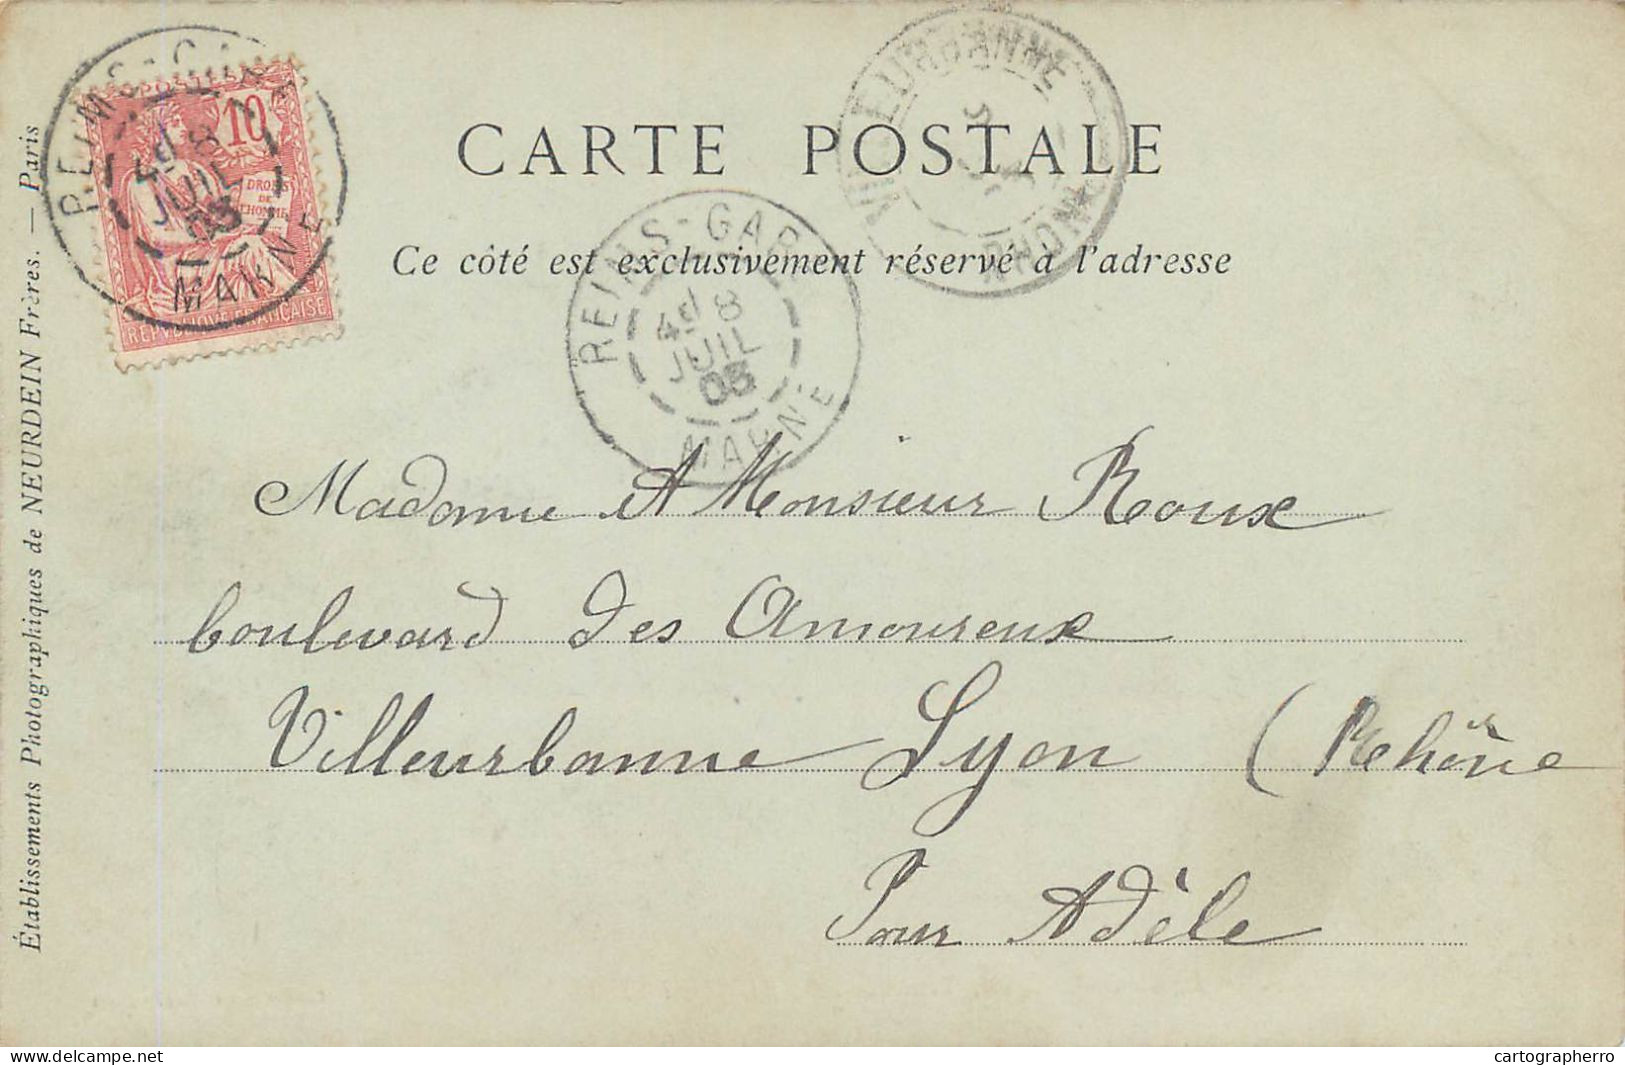 CARTE POSTALE
Ce côté est exclusivement réservé à l'adresse
POSTES
10
DROITS
DE
L'HOMME
REPVBLIQVE FRANÇAISE
REIMS-GARE
4d 8
JUIL
03
MARNE
REIMS-GARE
4d 8
JUIL
03
MARNE
VILLEURBANNE
RHONE
Madame et Monsieur Roux
boulevard des Amoureux
Villeurbanne Lyon (Rhône
Pour Adèle
Établissements Photographiques de NEURDEIN Frères. — Paris
delcampe.net
cartographerro